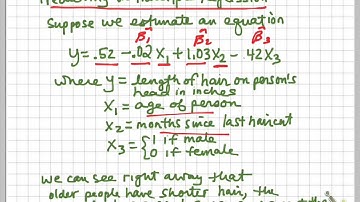 Suppose we estimate an equation
β̂₁ β̂₂ β̂₃
y = .52 - .02 X₁ + 1.03X₂ - .42X₃
where y = length of hair on person's
head in inches
X₁ = age of person
X₂ = months since last haircut
X₃ = {1 if male
0 if female
we can see right away that
older people have shorter hair, the